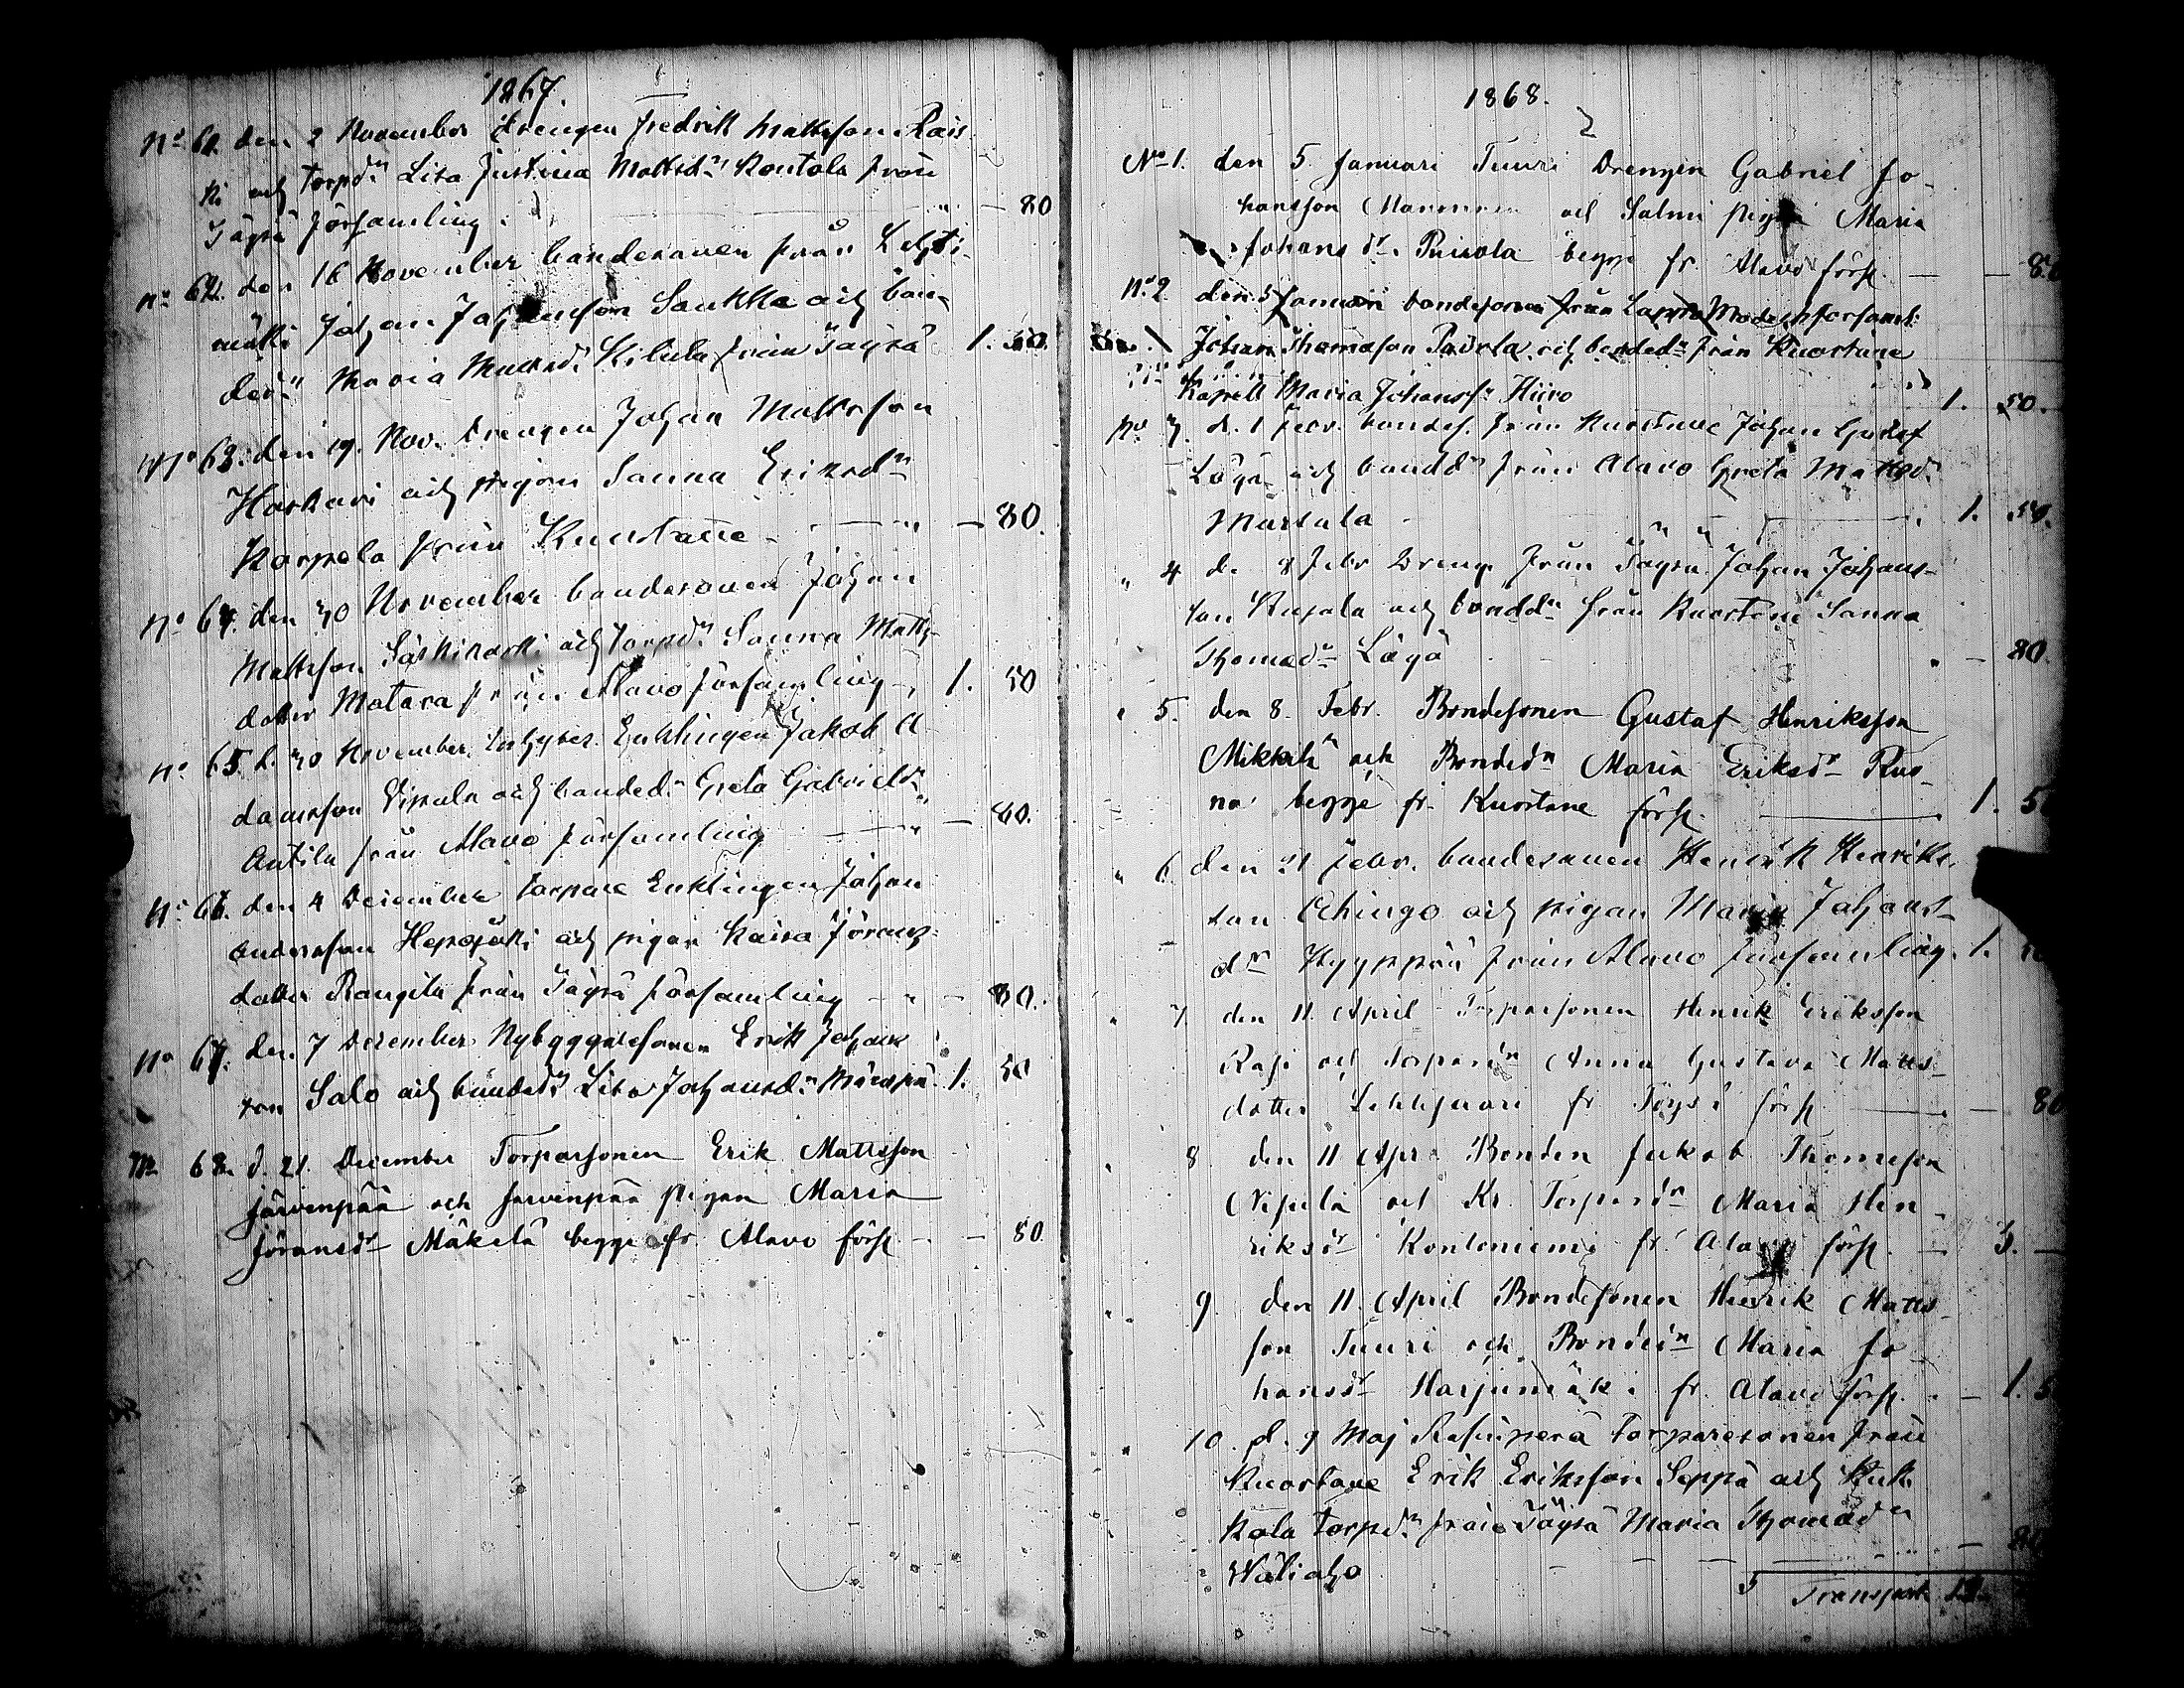 1867.
No 61. den 2 November Drengen Fredrik Mattsson Rais
ki och torpdn Lisa Justina Mattsdn Kontola från
Töysä församling. " — 80
No 62. den 16 November bondesonen från Lehti-
mäki Johan Johansson Saukko och bon-
dedn Maria Mattsdn Kilula från Töysä 1. 50.
No 63. den 19. Nov. drengen Johan Mattsson
Harkari och pigan Sanna Eriksdn
Karpela från Kuortane — " — 80.
No 64. den 30 November bondesonen Johan
Mattsson och torpdn Sanna Matts-
dotter Matara från Alavo församling —, 1. 50
No 65. d. 30 November Enklingen Jakob A
damsson och bondedn Greta Gabrielsdn
Antila från Alavo församling — " — 80.
No 66. den 4 December torpare Enklingen Johan
Andersson Hepojoki och pigan Kaisa Jörans-
dotter Rangila från Töysä församling — " — 80.
No 67. den 7 December Nybyggaresonen Erik Johans
son Salo och bondedn Lisa Johansdn 1. 50
No 68. d. 21 December Torparsonen Erik Mattsson
Järvenpää och Jarvenpää pigan Maria
Jöransdr Mäkelä begge fr. Alavo förs. — — 80
1868.
No 1. den 5 Januari Tuuri Drengen Gabriel Jo-
hansson och Salmi pigan Maria
Johansdr. begge fr. Alavo förs. — — 80
No 2 den 5 Januari bondesonen från Lappo Moderförsaml:
Johan Thomasson och bondedn från Kuortane
Kapell Maria Johansdr Hiiro 1. 50.
No 3. d. 1 febr. bondes. från Kuortane Johan Gustaf
Löyä och bonddn från Alavo Greta Mattsdn
Mursula — 1. 50.
" 4 d. 8 febr Dreng från Töysä Johan Johans-
son Kujala och bonddn från Kuortane Sanna
Thomasdn Löyä " — 80.
" 5. den 8. Febr. Bondesonen Gustaf Henriksson
Mikkilä och Bondedn Maria Eriksdr Ruo-
na begge fr. Kuortane förs. 1. 5
" 6. den 21 febr. bondesonen Henrik Henriks-
son och pigan Maria Johans-
dr Kyyppää från Alavo församling. 1.
" 7 den 11 April Torparsonen Henrik Eriksson
och Torparedn Anna Gustava Matts-
dotter fr Töysä förs — 80
" 8 den 11 Apr. Bonden Jakob Thomasson
och Torparedn Maria Hen-
riksdr Kontoniemi fr. Alavo förs. — 3. —
" 9. den 11. April Bondesonen Henrik Matts-
son Tuuri och Bondedn Maria Jo-
hansdr Harjumäki fr. Alavo förs. — 1. 5
" 10. d. 9 Maj torparesonen från
Kuortane Erik Eriksson Seppä och Kuk
kola torpdn från Töysä Maria Thomasdn
Wäliaho — — — — 80
Transport